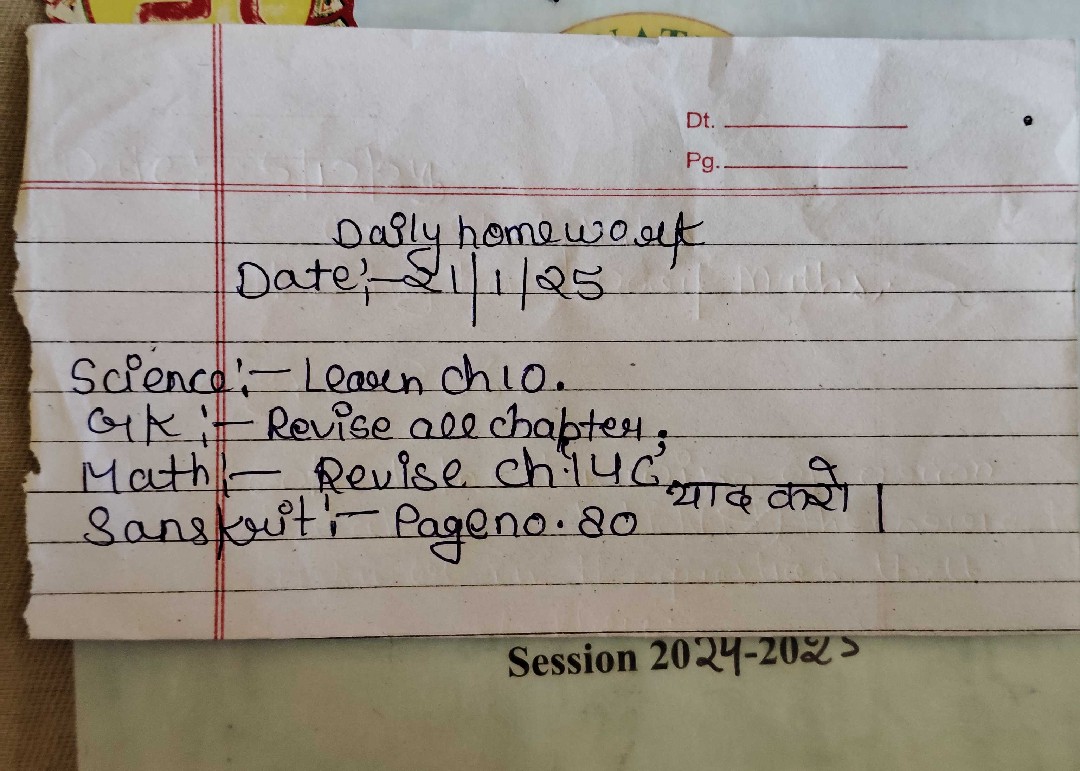 Dt.
Pg.
Daily homework
Date:- 21/1/25
Science:- Learn ch 10.
GK :- Revise all chapter.
Math:- Revise ch.14
Sanskrit:- Page no. 80 याद करो |
Session 2024-2025